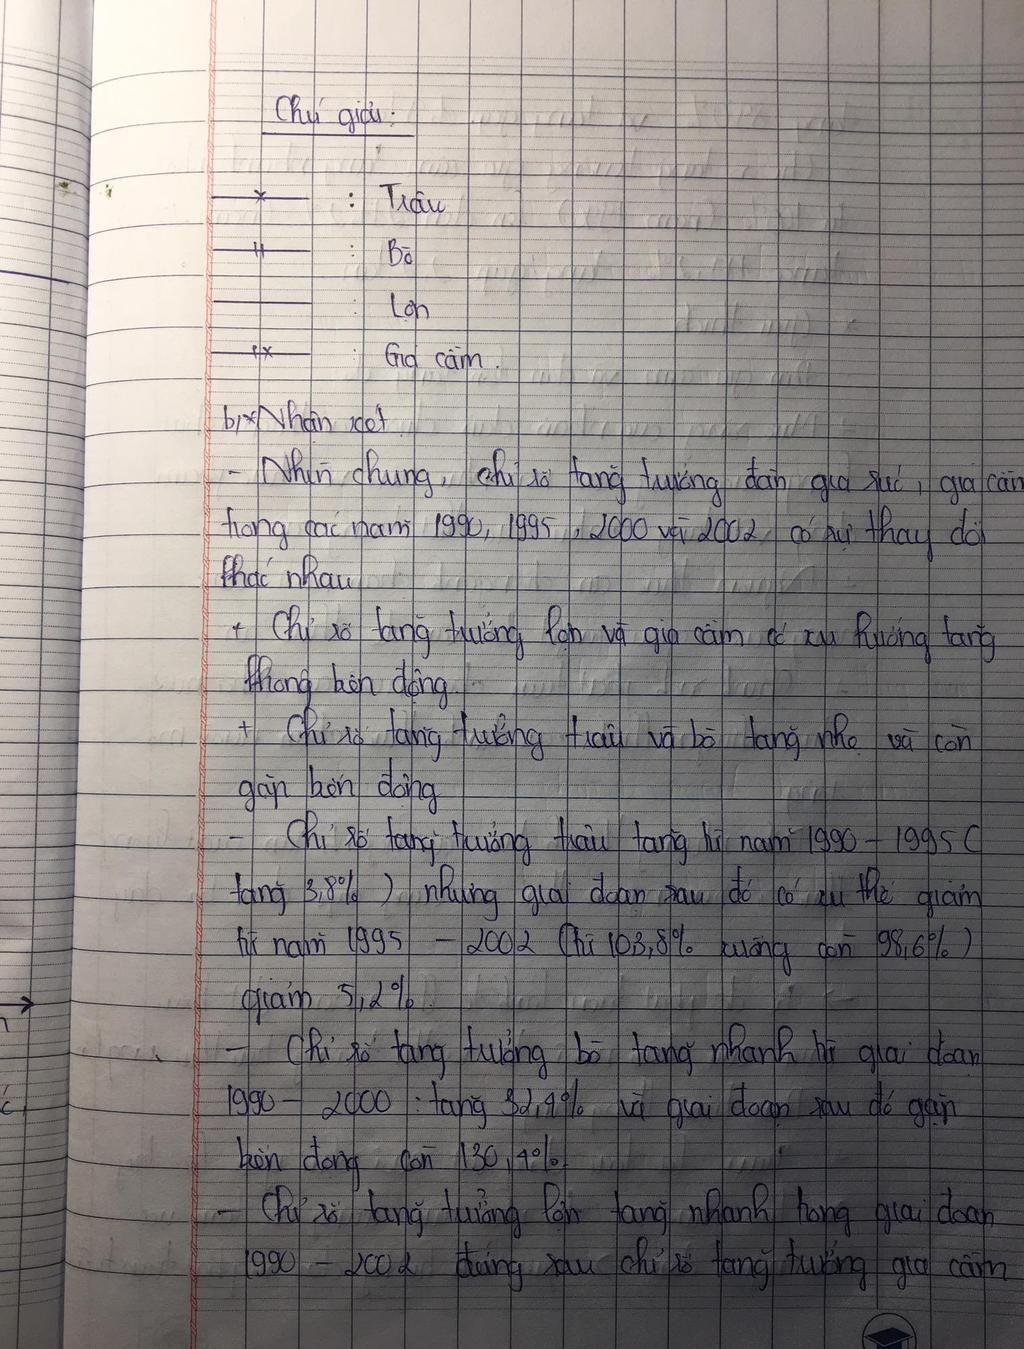 Chú giải:
: Trâu
: Bò
: Lợn
: Gia cầm.
b,* Nhận xét.
- Nhìn chung, chỉ số tăng trưởng đàn gia súc, gia cầm
trong các năm 1990, 1995, 2000 và 2002 có sự thay đổi
khác nhau
+ Chỉ số tăng trưởng lợn và gia cầm có xu hướng tăng
không biến động.
+ Chỉ số tăng trưởng trâu và bò tăng nhẹ và còn
gặp biến động
- Chỉ số tăng trưởng trâu tăng từ năm 1990 - 1995 (
tăng 3,8%) nhưng giai đoạn sau đó có xu thế giảm
từ năm 1995 - 2002 (từ 103,8% xuống còn 98,6%)
giảm 5,2%.
- Chỉ số tăng trưởng bò tăng nhanh từ giai đoạn
1990 - 2000 : tăng 32,4% và giai đoạn sau đó gặp
biến động còn 130,4%.
- Chỉ số tăng trưởng lợn tăng nhanh trong giai đoạn
1990 - 2002 đứng sau chỉ số tăng trưởng gia cầm